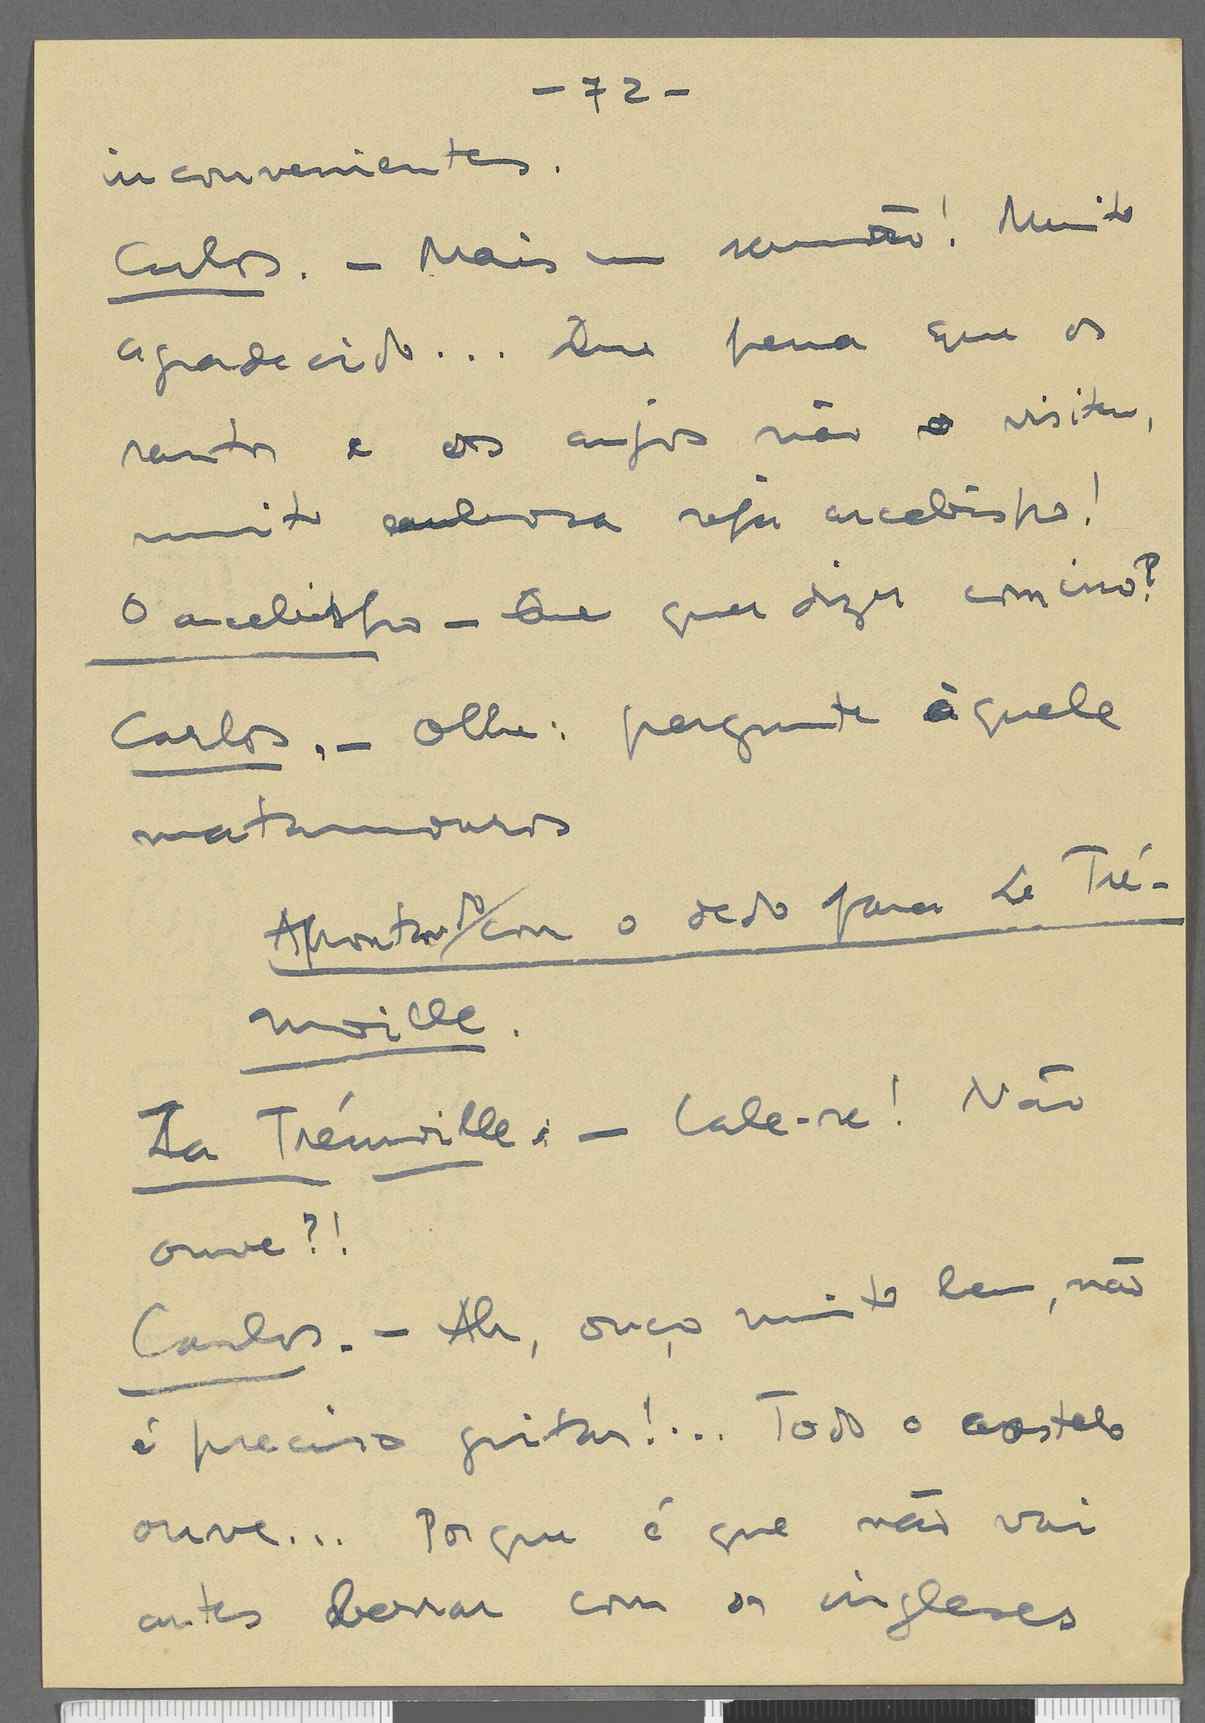 - 72 -
inconvenientes.
Carlos. - Mais um sermão! Muito
agradecido... Que pena que os
santos e os anjos não o visitem,
muito embora seja arcebispo!
O arcebispo - Que quer dizer com isso?
Carlos. - Olhe: pergunte àquele
matamouros
Apontando com o dedo para La Tré-
moille.
La Trémoille. - Cale-se! Não
ouve?!
Carlos. - Ah, ouço muito bem, não
é preciso gritar!... Todo o castelo
ouve... Porque é que não vai
antes berrar com os ingleses